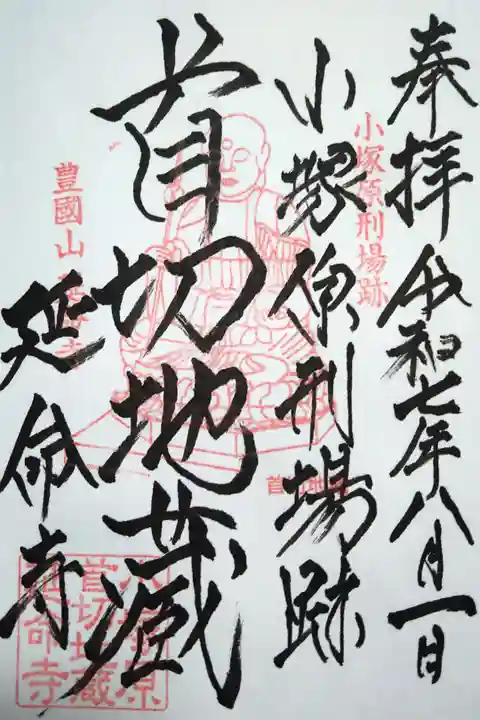 奉拝 令和七年八月一日
小塚原刑場跡
小塚原刑場跡
首切地蔵
豊國山
延命寺
小塚原
首切地蔵
延命寺